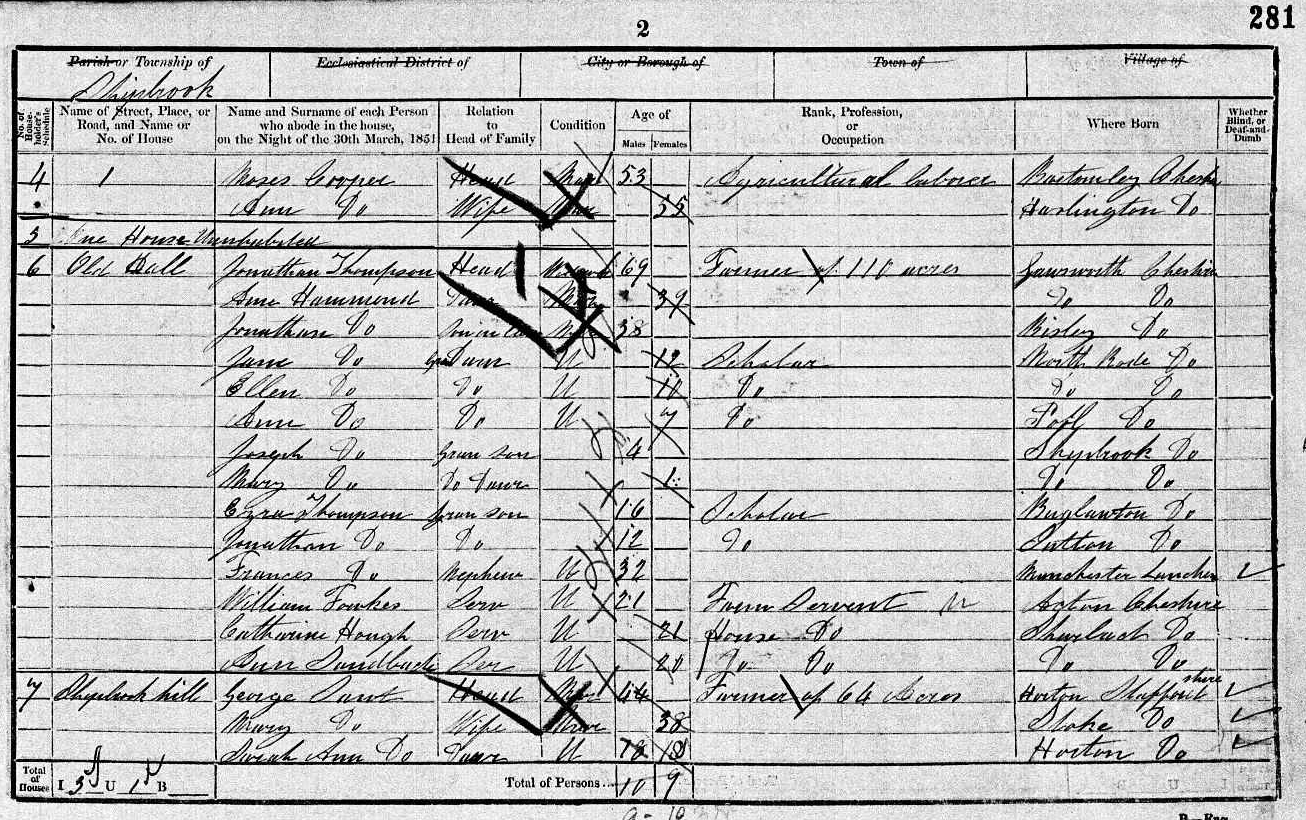 281
2
Parish or Township of Ecclesiastical District of City or Borough of Town of Village of
Shipbrook
No. of House-holder's Schedule Name of Street, Place, or Road, and Name or No. of House Name and Surname of each Person who abode in the house, on the Night of the 30th March, 1851 Relation to Head of Family Condition Age of Males Females Rank, Profession, or Occupation Where Born Whether Blind, or Deaf-and-Dumb
4 1 Moses Cooper Head Mar 53 Agricultural laborer Cheshire
Ann Do Wife 55 Haslington Do
5 One House Uninhabited
6 Old Hall Jonathan Thompson Head 69 Farmer of 110 acres Gawsworth Cheshire
Ann Hammond Daur 39 Do Do
Jonathan Do Son in law 38 Do
Jane Do Daur U 12 Scholar North Rode Do
Ellen Do Do U 10 Do Do Do
Ann Do Do U 7 Do Do
Joseph Do Gran son 4 Shipbrook Do
Mary Do Do Daur 1 Do Do
Ezra Thompson Gran son 16 Scholar Buglawton Do
Jonathan Do Do 12 Do Sutton Do
Frances Do Nephew U 32 Manchester
William Fowkes Serv U 21 Farm Servent Acton Cheshire
Catharine Hough Serv U 21 House Do Do
Ann Sandbach Ser U 20 Do Do Do Do
7 Shipbrook hill George Sant Head Mar 44 Farmer of 64 Acres Horton
Mary Do Wife 38 Stoke Do
Sarah Ann Do Daur U 18 Horton Do
Total of Houses I 3 U 1 B Total of Persons... 10 9
B—Eng.